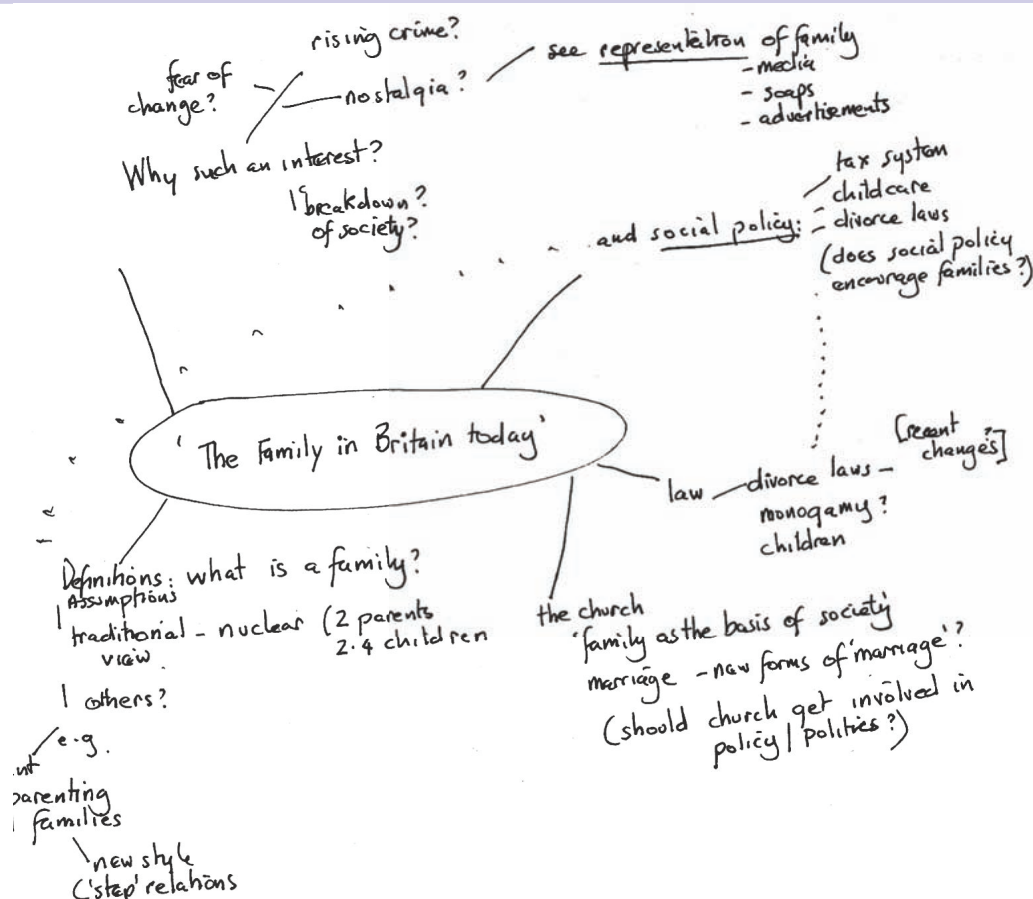 rising crime?
fear of
change?
nostalgia?
see representation of family
- media
- soaps
- advertisements
Why such an interest?
breakdown?
of society?
and social policy:
tax system
- childcare
- divorce laws
(does social policy
encourage families?)
'The Family in Britain today'
law
divorce laws -
[recent
changes?]
monogamy?
children
Definitions: what is a family?
Assumptions
traditional - nuclear (2 parents
view. 2.4 children
others?
e.g.
parenting
families
new style
('step' relations
the church
'family as the basis of society
marriage - new forms of 'marriage'?
(should church get involved in
policy / politics?)